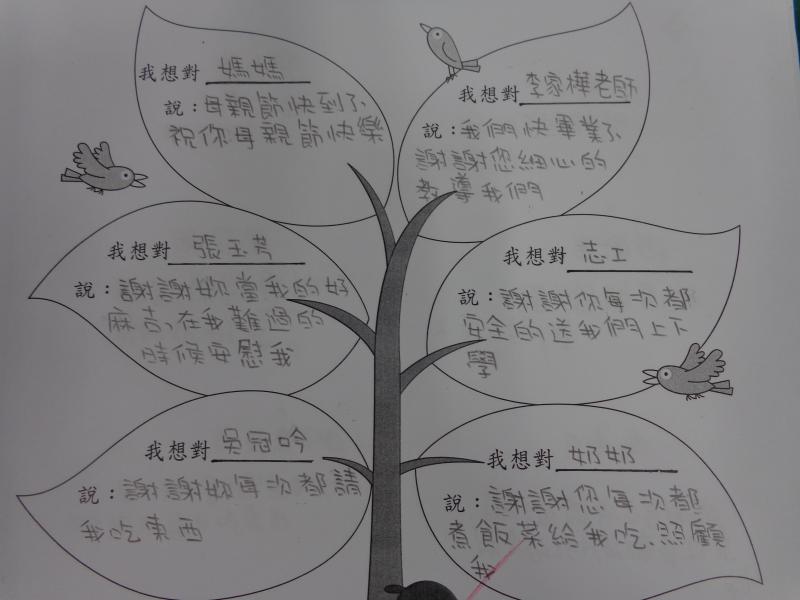 我想對 媽媽
說：母親節快到了、
祝你母親節快樂
我想對 李家樺老師
說：我們快畢業了、
謝謝您細心的
教導我們
我想對 張玉芳
說：謝謝妳當我的好
麻吉、在我難過的
時候安慰我
我想對 志工
說：謝謝你每次都
安全的送我們上下
學
我想對 吳冠吟
說：謝謝妳每次都請
我吃東西
我想對 奶奶
說：謝謝您每次都
煮飯菜給我吃、照顧
我